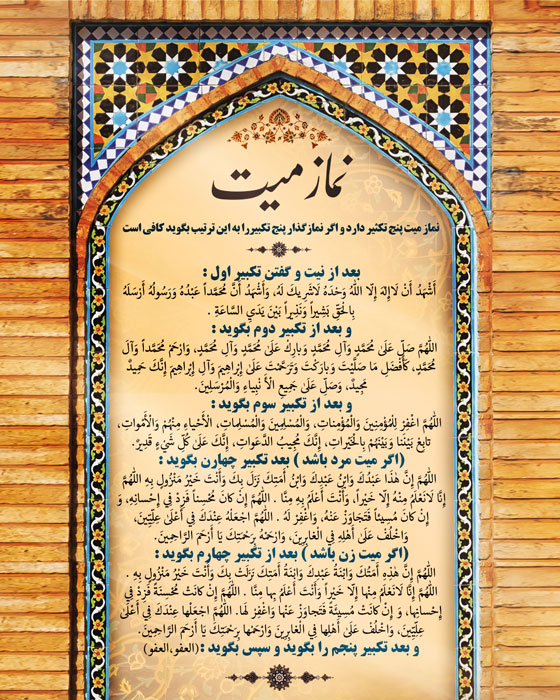 نماز میت
نماز میت پنج تکثیر دارد و اگر نماز گذار پنج تکبیر را به این ترتیب بگوید کافی است
بعد از نیت و گفتن تکبیر اول :
أَشْهَدُ أَنْ لَاإِلهَ إِلَّا اللَّهُ وَحْدَهُ لَاشَرِيكَ لَهُ، وَأَشْهَدُ أَنَّ مُحَمَّداً عَبْدُهُ وَرَسُولُهُ أَرْسَلَهُ
بِالْحَقِّ بَشِيراً وَنَذِيراً بَيْنَ يَدَيِ السَّاعَةِ .
و بعد از تکبیر دوم بگوید :
اللَّهُمَّ صَلِّ عَلَىٰ مُحَمَّدٍ وَآلِ مُحَمَّدٍ وَبارِكْ عَلَىٰ مُحَمَّدٍ وَآلِ مُحَمَّدٍ، وَارْحَمْ مُحَمَّداً وَآلَ
مُحَمَّدٍ، كَأَفْضَلِ مَا صَلَّيْتَ وَبَارَكْتَ وَتَرَحَّمْتَ عَلَىٰ إِبراهِيمَ وَآلِ إِبراهِيمَ إِنَّكَ حَمِيدٌ
مَجِيدٌ، وَصَلِّ عَلَىٰ جَمِيعِ الْأَ نْبِياءِ وَالْمُرْسَلِينَ.
و بعد از تکبیر سوم بگوید :
اللَّهُمَّ اغْفِرْ لِلْمُؤْمِنِينَ وَالْمُؤْمِناتِ، وَالْمُسْلِمِينَ وَالْمُسْلِماتِ، الْأَحْياءِ مِنْهُمْ وَالْأَمْواتِ،
تابِعْ بَيْنَنا وَبَيْنَهُمْ بِالْخَيْراتِ، إِنَّكَ مُجِيبُ الدَّعَواتِ، إِنَّكَ عَلَىٰ كُلِّ شَيْءٍ قَدِيرٌ.
(اگر میت مرد باشد ) بعد تکبیر چهارن بگوید :
اللَّهُمَّ إِنَّ هٰذَا عَبْدُكَ وَابْنُ عَبْدِكَ وَابْنُ أَمَتِكَ نَزَلَ بِكَ وَأَنْتَ خَيْرُ مَنْزُولٍ بِهِ اللَّهُمَّ
إِنَّا لَانَعْلَمُ مِنْهُ إِلَّا خَيْراً، وَأَنْتَ أَعْلَمُ بِهِ مِنَّا . اللَّهُمَّ إِنْ كانَ مُحْسِناً فَزِدْ فِي إِحْسانِهِ، وَ
إِنْ كَانَ مُسِيئاً فَتَجَاوَزْ عَنْهُ، وَاغْفِرْ لَهُ . اللَّهُمَّ اجْعَلْهُ عِنْدَكَ فِي أَعْلَىٰ عِلِّيِّينَ،
وَاخْلُفْ عَلَىٰ أَهْلِهِ فِي الْغابِرِينَ، وَارْحَمْهُ بِرَحْمَتِكَ يَا أَرْحَمَ الرَّاحِمِينَ.
(اگر میت زن باشد ) بعد از تکبیر چهارم بگوید :
اللَّهُمَّ إِنَّ هٰذِهِ أَمَتُكَ وَابْنَةُ عَبْدِكَ وَابْنَةُ أَمَتِكَ نَزَلَتْ بِكَ وَأَنْتَ خَيْرُ مَنْزُولٍ بِهِ .
اللَّهُمَّ إِنَّا لَانَعْلَمُ مِنْها إِلَّا خَيْراً وَأَنْتَ أَعْلَمُ بِها مِنَّا . اللَّهُمَّ إِنْ كَانَتْ مُحْسِنَةً فَزِدْ فِي
إِحْسانِها، وَ إِنْ كانَتْ مُسِيئَةً فَتَجاوَزْ عَنْها وَاغْفِرْ لَها. اللَّهُمَّ اجْعَلْها عِنْدَكَ فِي أَعْلَىٰ
عِلِّيِّينَ، وَاخْلُفْ عَلَىٰ أَهْلِها فِي الْغابِرِينَ وَارْحَمْها بِرَحْمَتِكَ يَا أَرْحَمَ الرَّاحِمِينَ.
و بعد تکبیر پنجم را بگوید و سپس بگوید : (العفو،العفو)